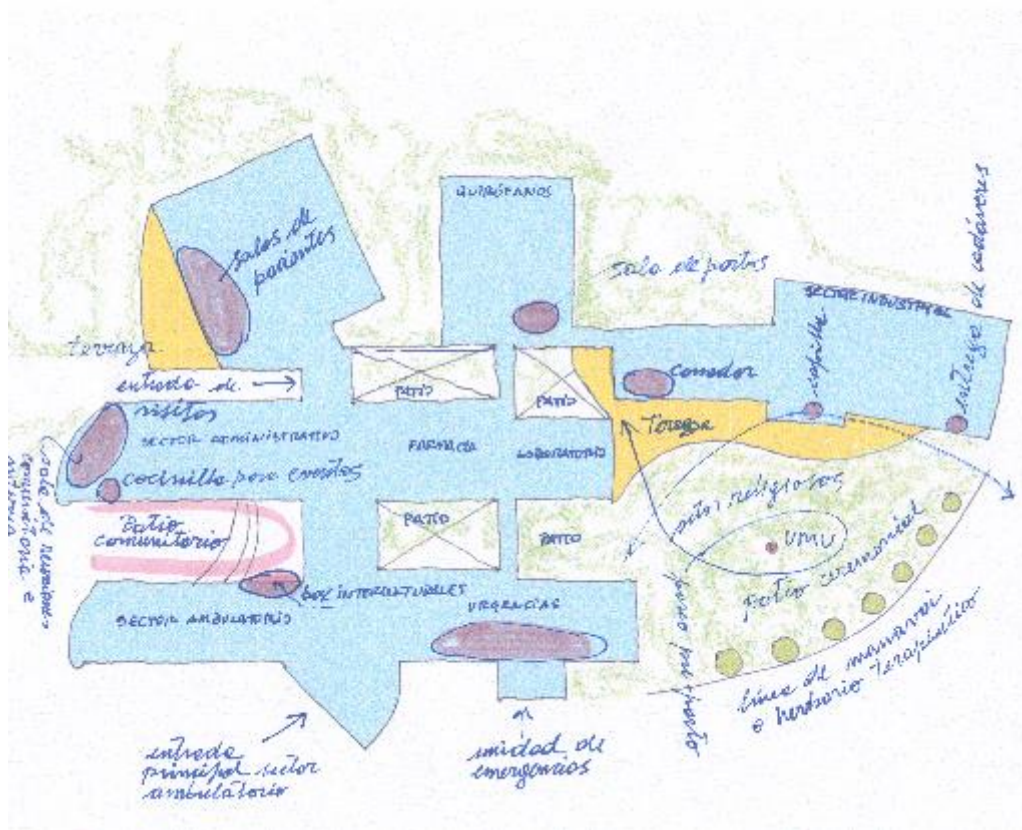 QUIRÓFANOS
salas de
parientes
sala de partos
SECTOR INDUSTRIAL
entrega de cadáveres
capilla
terraza
entrada de
visitas
PATIO
PATIO
comedor
Terraza
SECTOR ADMINISTRATIVO
FARMACIA
LABORATORIO
cocinilla para eventos
sala de reuniones
comunitaria e
Patio
comunitario
PATIO
PATIO
sitos religiosos
UMU
Patio ceremonial
box INTERCULTURALES
URGENCIAS
SECTOR AMBULATORIO
línea de manavai
o herbario terapéutico
entrada
principal sector
ambulatorio
unidad de
emergencias